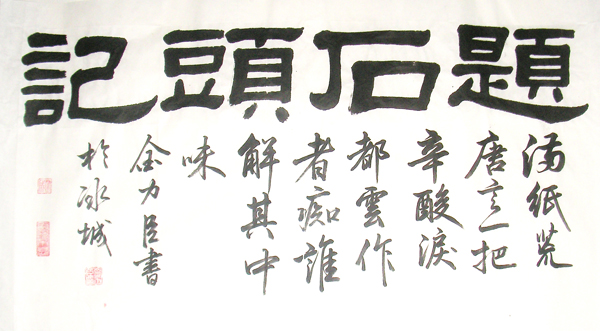 題石頭記
滿紙荒
唐言一把
辛酸淚
都雲作
者痴誰
解其中
味
金力臣書
於冰城